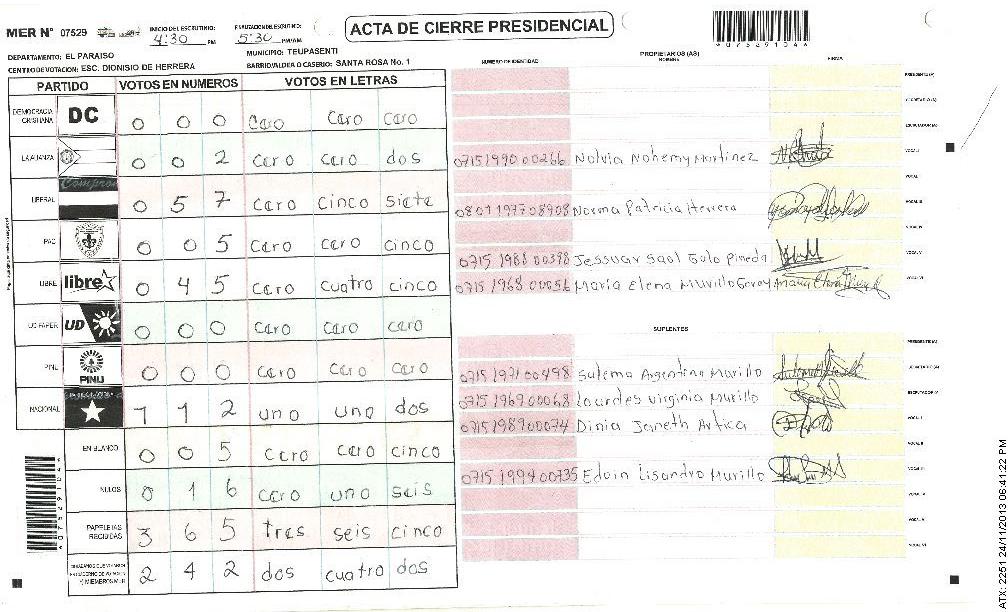 MER N° 07529
INICIO DEL ESCRUTINIO: 4:30 PM
FINALIZACION DEL ESCRUTINIO: 5:30 PM/AM
ACTA DE CIERRE PRESIDENCIAL
DEPARTAMENTO: EL PARAISO
MUNICIPIO: TEUPASENTI
CENTRO DE VOTACION: ESC. DIONISIO DE HERRERA
BARRIO/ALDEA O CASERIO: SANTA ROSA No. 1
PARTIDO VOTOS EN NUMEROS VOTOS EN LETRAS
DEMOCRACIA CRISTIANA DC 0 0 0 cero cero cero
LA ALIANZA 0 0 2 cero cero dos
LIBERAL 0 5 7 cero cinco siete
PAC 0 0 5 cero cero cinco
LIBRE libre 0 4 5 cero cuatro cinco
UD FAPER UD 0 0 0 cero cero cero
PINU PINU 0 0 0 cero cero cero
NACIONAL 1 1 2 uno uno dos
EN BLANCO 0 0 5 cero cero cinco
NULOS 0 1 6 cero uno seis
PAPELETAS RECIBIDAS 3 6 5 tres seis cinco
2 4 2 dos cuatro dos
NUMERO DE IDENTIDAD PROPIETARIOS (AS) NOMBRE FIRMA
PRESIDENTE (A)
SECRETARIO (A)
ESCRUTADOR (A)
0715199000266 Nolvia Nohemy Martinez VOCAL I
VOCAL II
0801197708908 Norma Patricia Herrera VOCAL III
VOCAL IV
0715 1988 00398 Jessuar Saol Golo Pineda VOCAL V
0715 1968 00056 Maria Elena Murillo Goroy VOCAL VI
SUPLENTES
PRESIDENTE (A)
0715 1971 00498 Sulema Argentina Murillo SECRETARIO (A)
0715 1969 00068 Lourdes Virginia Murillo ESCRUTADOR (A)
0715198900074 Dinia Janeth Artica VOCAL I
VOCAL II
0715199400735 Edvin Lisandro Murillo VOCAL III
VOCAL IV
VOCAL V
VOCAL VI
ATX: 2251 24/11/2013 06:41:22 PM